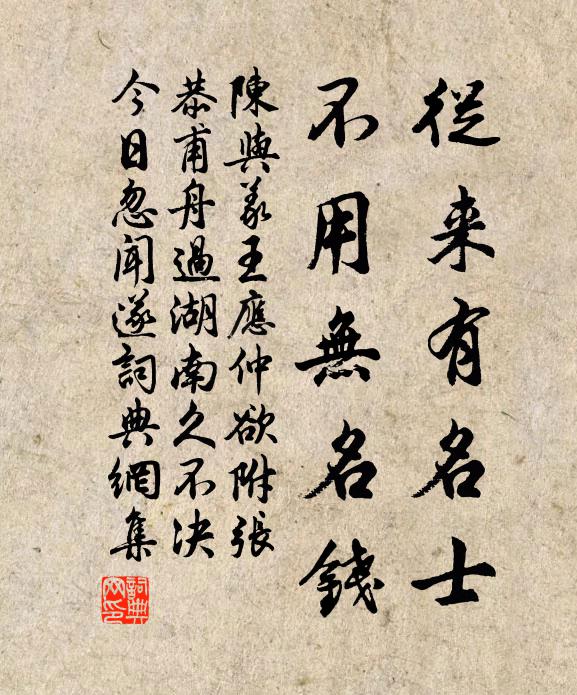 從来有名士
不用無名錢
陳與義王應仲欲附張
恭甫舟過湖南久不决
今日忽聞遂詞典網集
詞典網印